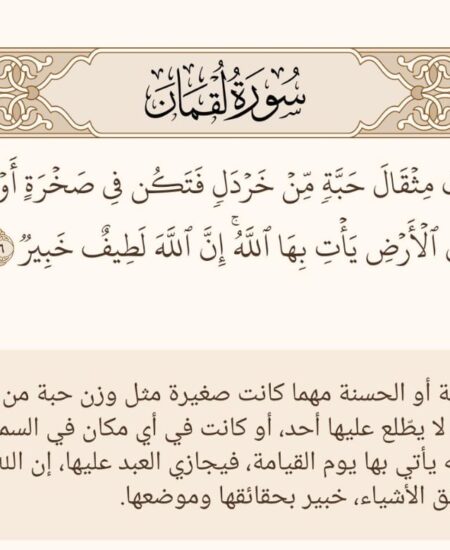 سُورَةُ لُقْمَان
مِثْقَالَ حَبَّةٍ مِّنْ خَرْدَلٍ فَتَكُن فِي صَخْرَةٍ أَوْ
ٱلْأَرْضِ يَأْتِ بِهَا ٱللَّهُۚ إِنَّ ٱللَّهَ لَطِيفٌ خَبِيرٌ
أو الحسنة مهما كانت صغيرة مثل وزن حبة من
لا يطّلع عليها أحد، أو كانت في أي مكان في
يأتي بها يوم القيامة، فيجازي العبد عليها، إن
الأشياء، خبير بحقائقها وموضعها.